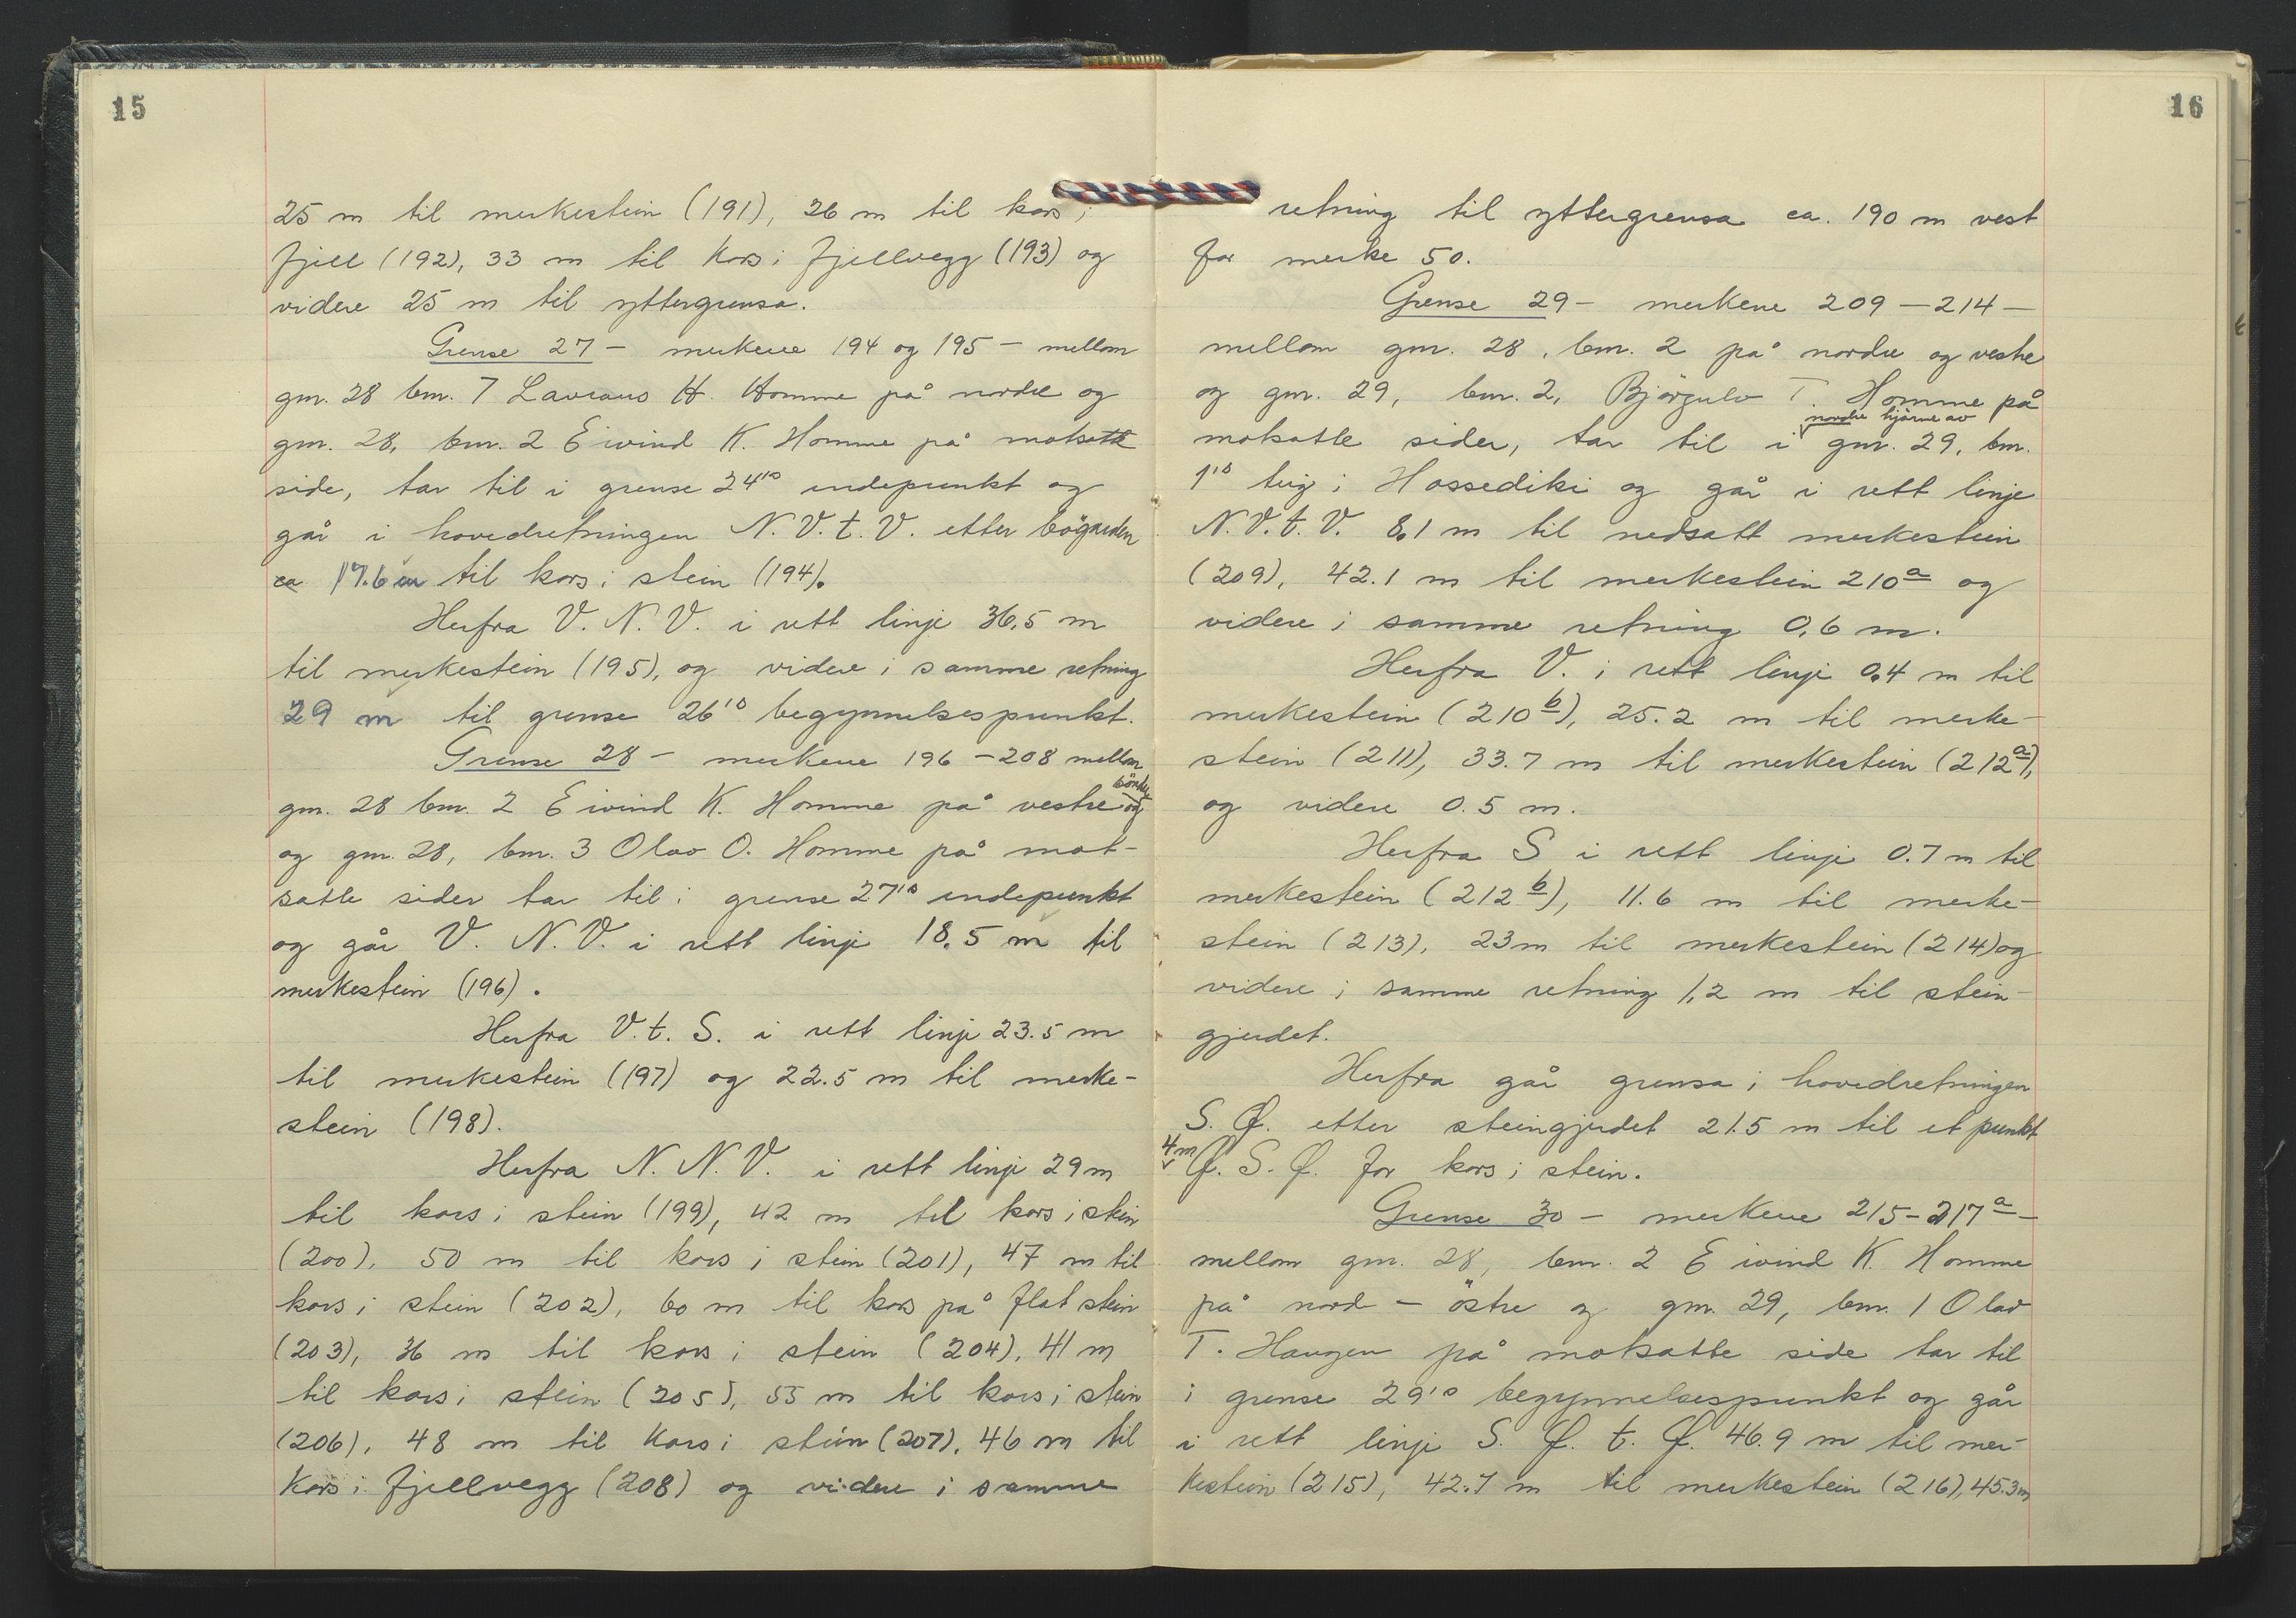 15
25 m til merkestein (191), 26 m til kors i
fjell (192), 33 m til kors i fjellvegg (193) og
videre 25 m til yttergrensa.
Grense 27 - merkene 194 og 195 - mellom
gnr. 28 bnr. 7 Lavrans H. Homme på nordre og
gnr. 28, bnr. 2 Eivind K. Homme på motsatte
side, tar til i grense 24's endepunkt og
går i hovedretningen N.V.t.V. etter bögarden
ca 17.6 m til kors i stein (194).
Herfra V.N.V. i rett linje 36,5 m
til merkestein (195), og videre i samme retning
29 m til grense 26's begynnelsespunkt.
Grense 28 - merkene 196 - 208 mellom
gnr. 28 bnr. 2 Eivind K. Homme på vestre og
og gnr. 28, bnr. 3 Olav O. Homme på mot-
satte sider tar til i grense 27's endepunkt
og går V.N.V. i rett linje 18,5 m til
merkestein (196).
Herfra V.t.S. i rett linje 23.5 m
til merkestein (197) og 22.5 m til merke-
stein (198).
Herfra N.N.V. i rett linje 29 m
til kors i stein (199), 42 m til kors i stein
(200), 50 m til kors i stein (201), 47 m til
kors i stein (202), 60 m til kors på flat stein
(203), 36 m til kors i stein (204), 41 m
til kors i stein (205), 55 m til kors i stein
(206), 48 m til kors i stein (207), 46 m til
kors i fjellvegg (208) og videre i samme
16
retning til yttergrensa ca. 190 m vest
for merke 50.
Grense 29 - merkene 209 - 214 -
mellom gnr. 28, bnr. 2 på nordre og vestre
og gnr. 29, bnr. 2, Björgulv T. Homme på
nordre hjörne av
motsatte sider, tar til i gnr. 29, bnr.
1's teig i Hossediki og går i rett linje
N.V.t.V. 8,1 m til nedsatt merkestein
(209), 42.1 m til merkestein 210a og
videre i samme retning 0,6 m.
Herfra V. i rett linje 0,4 m til
merkestein (210b), 25.2 m til merke-
stein (211), 33.7 m til merkestein (212a),
og videre 0.5 m.
Herfra S i rett linje 0.7 m til
merkestein (212b), 11.6 m til merke-
stein (213), 23 m til merkestein (214) og
videre i samme retning 1,2 m til stein-
gjerdet.
Herfra går grensa i hovedretningen
S.Ø. etter steingjerdet 21.5 m til et punkt
4 m Ø.S.Ø. for kors i stein.
Grense 30 - merkene 215-217a -
mellom gnr. 28, bnr. 2 Eivind K. Homme
på nord - östre og gnr. 29, bnr. 1 Olav
T. Haugen på motsatte side tar til
i grense 29's begynnelsespunkt og går
i rett linje S.Ø.t.Ø. 46.9 m til mer-
kestein (215), 42.7 m til merkestein (216), 45.3 m